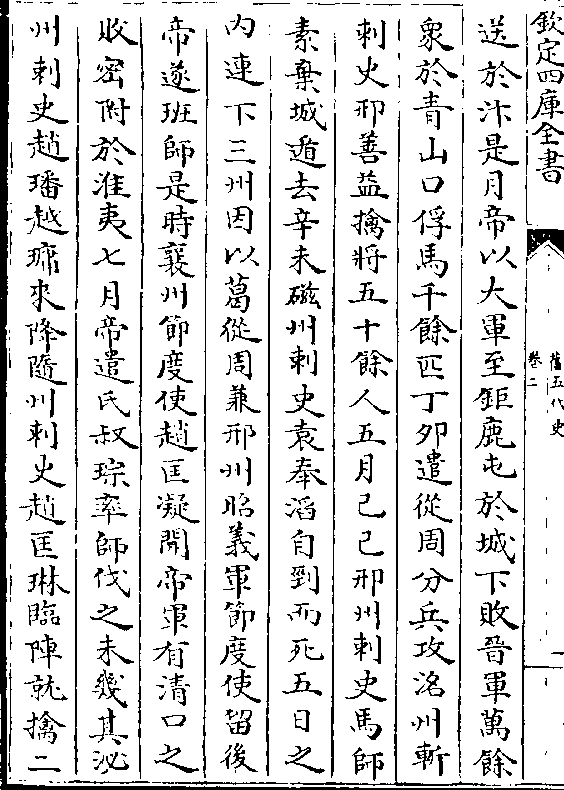 欽定四庫全書
舊五代史
卷二
送於汴是月帝以大軍至鉅鹿屯於城下敗晉軍萬餘
衆於青山口俘馬千餘匹丁卯遣從周分兵攻洺州斬
刺史邢善益擒將五十餘人五月己巳邢州刺史馬師
素棄城遁去辛未磁州刺史袁奉滔自剄而死五日之
内連下三州因以葛從周兼邢州昭義軍節度使留後
帝遂班師是時襄州節度使趙匡凝聞帝軍有清口之
敗密附於淮夷七月帝遣氏叔琮率師伐之未幾其泌
州刺史趙璠越墉來降隨州刺史趙匡琳臨陣就擒二